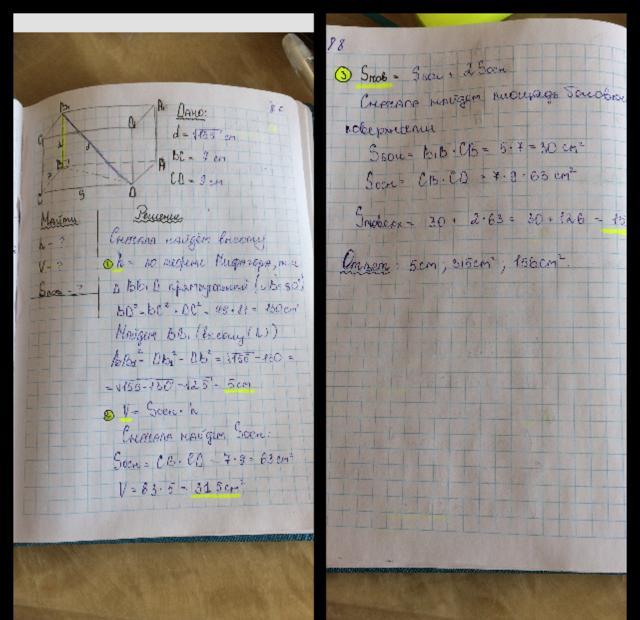 Дано:
d = √155 см
BC = 7 см
CD = 9 см
Найти
h - ?
V - ?
Sпов = ?
Решение
Сначала найдём высоту
① h = по теореме Пифагора, т.к
BD² = BC² + DC² = 49 + 81 = 130 см
Найдём BB₁ (высоту (h))
= √155-130 = √25 = 5см
② V = Sосн · h
Сначала найдём Sосн:
Sосн = CB · CD = 7·9 = 63 см²
V = 63 · 5 = 315 см²
88
③ Sпов = Sбок + 2Sосн
Сначала найдём площадь боковой
поверхности
Sбок = B₁B · CB = 5·7 = 30 см²
Sосн = CB · CD = 7·9 = 63 см²
Sповерх = 30 + 2·63 = 30 + 126 = 15
Ответ: 5см, 315см², 156см².